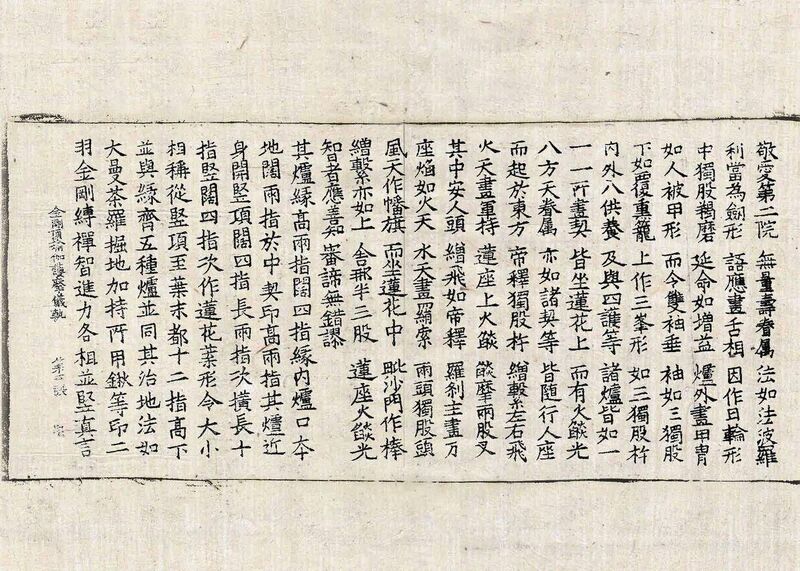 敬愛第二院 無量壽眷属 法如法波羅
利當為劔形 語應畫舌相 因作日輪形
中獨股羯磨 延命如增益 爐外畫甲冑
如人被甲形 而令雙袖垂 袖如三獨股
下如覆重籠 上作三峯形 如三獨股杵
內外八供養 及與四護等 諸爐皆如一
一一所畫契 皆坐蓮花上 而有火燄光
八方天眷属 亦如諸契等 皆随行人座
而起於東方 帝釋獨股杵 繒繫左右飛
火天畫軍持 蓮座上火燄 燄摩兩股叉
其中安人頭 繒飛如帝釋 羅刹主畫刀
座焰如火天 水天畫羂索 兩頭獨股頭
風天作幡旗 而坐蓮花中 毗沙門作棒
繒繫亦如上 舍那半三股 蓮座火燄光
智者應善知 審諦無錯謬
其爐緣高兩指闊四指緣內爐口本
地闊兩指於中契印高兩指其爐近
身開竪項闊四指長兩指次橫長十
指竪闊四指次作蓮花葉形令大小
相稱從竪項至葉末都十二指高下
並與緣齊五種爐並同其治地法如
大曼荼羅掘地加持所用鍬等印二
羽金剛縛禪智進力各相並竪真言
金剛頂瑜伽護摩儀軌